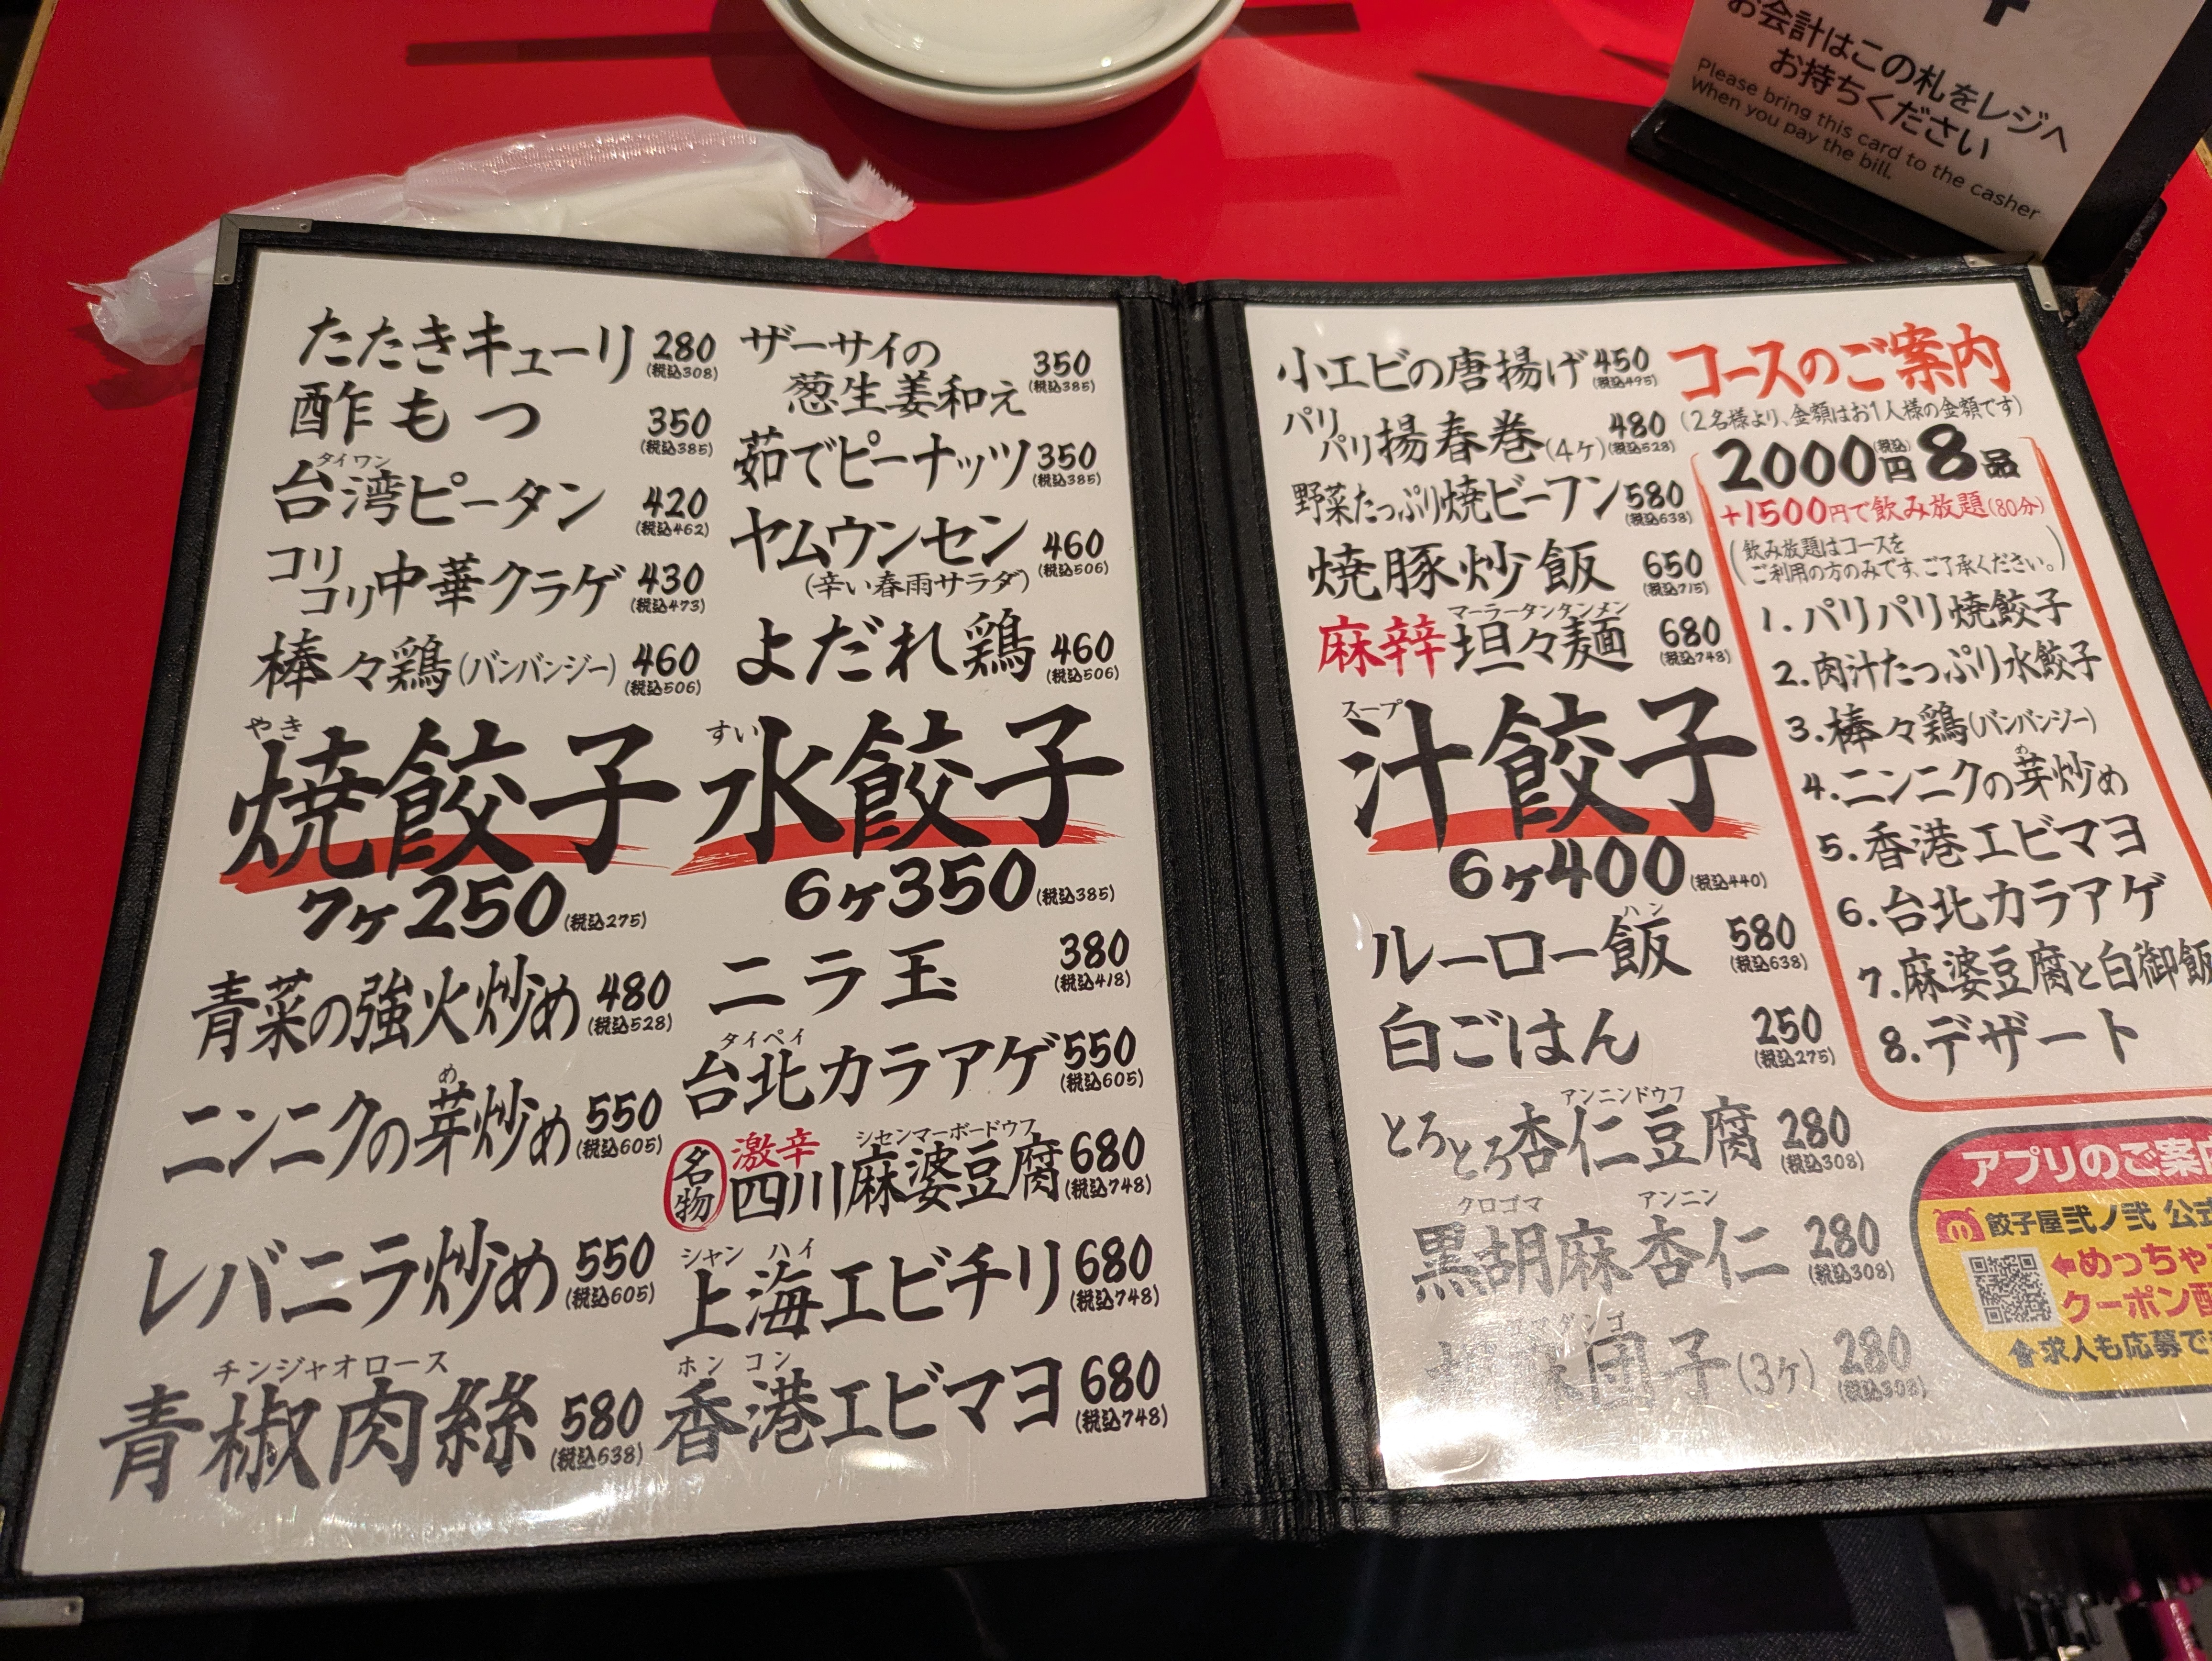 お会計はこの札をレジへ
お持ちください
Please bring this card to the casher
When you pay the bill.
たたきキューリ 280
(税込308)
酢もつ 350
(税込385)
タイワン
台湾ピータン 420
(税込462)
コリ
コリ中華クラゲ 430
(税込473)
棒々鶏(バンバンジー) 460
(税込506)
ザーサイの
葱生姜和え 350
(税込385)
茹でピーナッツ 350
(税込385)
ヤムウンセン 460
(辛い春雨サラダ) (税込506)
よだれ鶏 460
(税込506)
やき
焼餃子
7ヶ250(税込275)
すい
水餃子
6ヶ350(税込385)
青菜の強火炒め 480
(税込528)
め
ニンニクの芽炒め 550
(税込605)
レバニラ炒め 550
(税込605)
チンジャオロース
青椒肉絲 580
(税込638)
ニラ玉 380
(税込418)
タイペイ
台北カラアゲ 550
(税込605)
名物
激辛
シセンマーボードウフ
四川麻婆豆腐 680
(税込748)
シャン ハイ
上海エビチリ 680
(税込748)
ホン コン
香港エビマヨ 680
(税込748)
小エビの唐揚げ 450
(税込495)
パリ
パリ揚春巻(4ヶ) 480
(税込528)
野菜たっぷり焼ビーフン 580
(税込638)
焼豚炒飯 650
(税込715)
マーラータンタンメン
麻辛坦々麺 680
(税込748)
スープ
汁餃子
6ヶ400(税込440)
ハン
ルーロー飯 580
(税込638)
白ごはん 250
(税込275)
アンニンドウフ
とろとろ杏仁豆腐 280
(税込308)
クロゴマ アンニン
黒胡麻杏仁 280
(税込308)
ゴマダンゴ
団子(3ヶ) 280
(税込308)
コースのご案内
(2名様より、金額はお1人様の金額です)
2000円(税込)8品
+1500円で飲み放題(80分)
(飲み放題はコースを
ご利用の方のみです、ご了承ください。)
1.パリパリ焼餃子
2.肉汁たっぷり水餃子
3.棒々鶏(バンバンジー)
め
4.ニンニクの芽炒め
5.香港エビマヨ
6.台北カラアゲ
7.麻婆豆腐と白御飯
8.デザート
アプリのご案内
餃子屋弐ノ弐 公式
←めっちゃ
クーポン配
↑求人も応募で